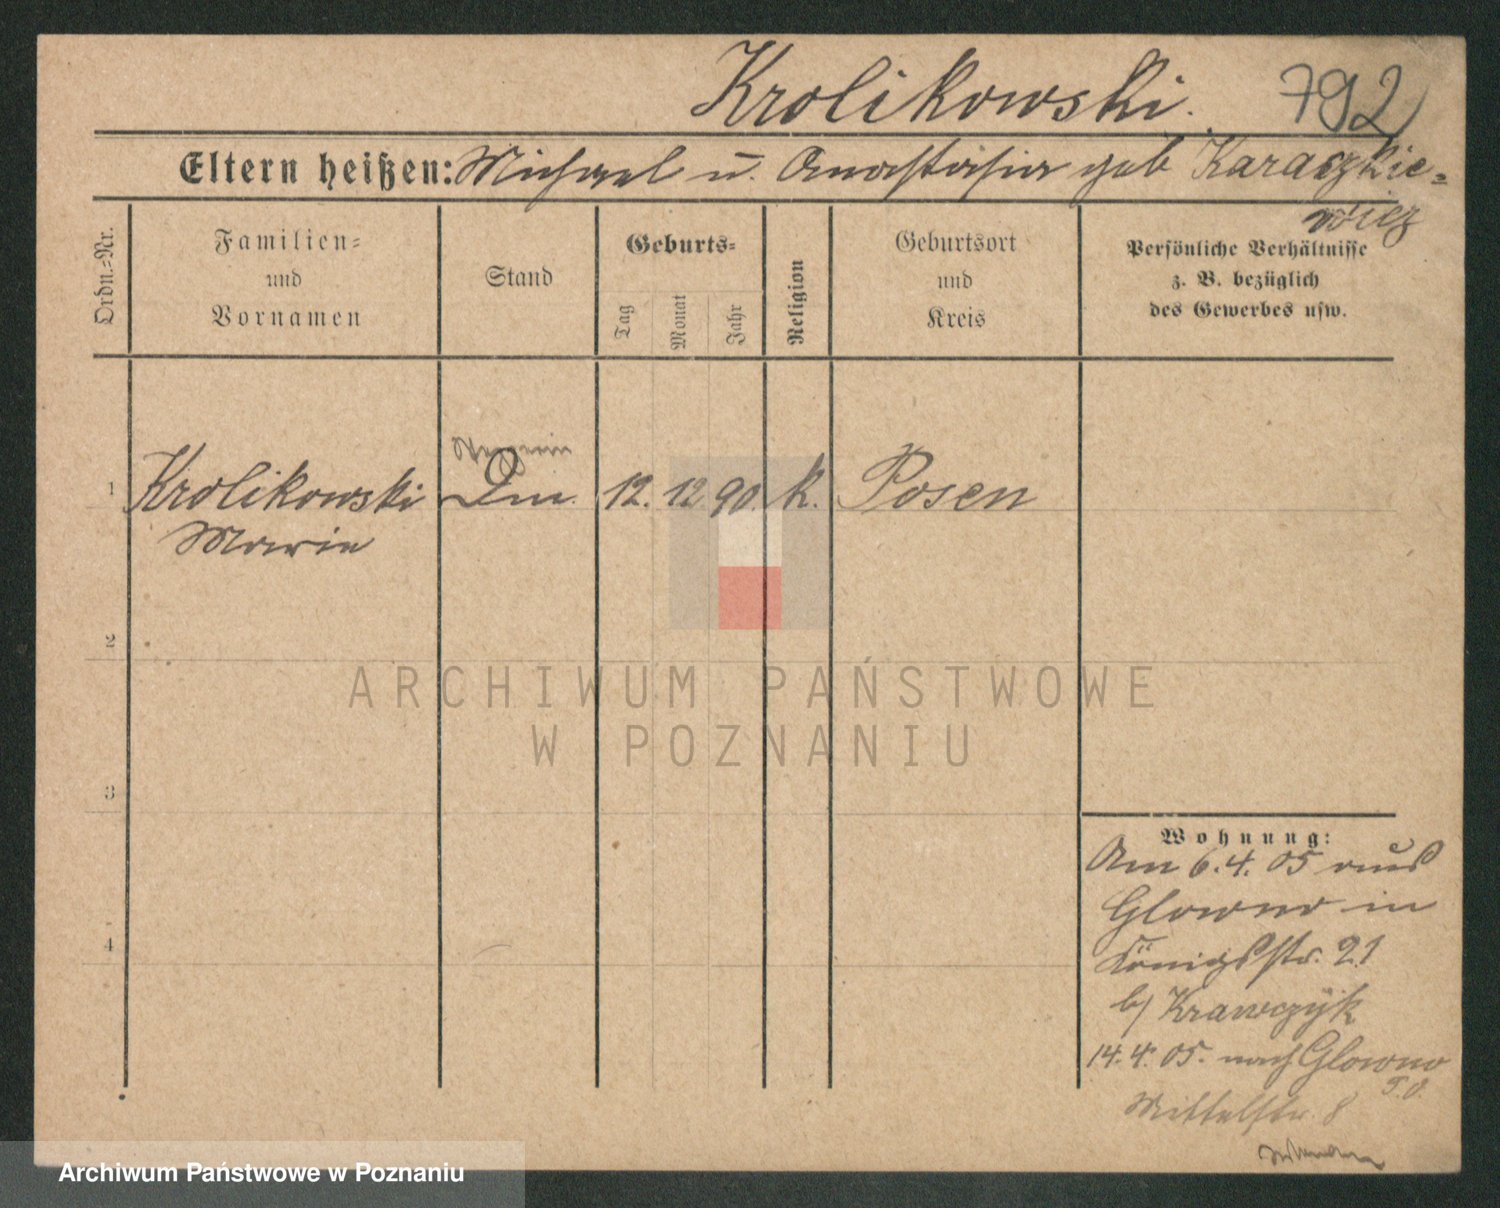 Krolikowski. 792
Eltern heißen: Michael u. Anastasia geb Karaczkie=
wicz
Ordn.-Nr.
Familien=
und
Vornamen
Stand
Geburts=
Tag
Monat
Jahr
Religion
Geburtsort
und
Kreis
Persönliche Verhältnisse
z. B. bezüglich
des Gewerbes usw.
1 Krolikowski 12. 12. 90. k. Posen
Marie
2
3
4
Wohnung:
Am 6.4.05 aus
Glowno in
Königsstr. 21
b/ Krawczÿk
14.4.05. nach Glowno
Mittelstr. 8
ARCHIWUM PAŃSTWOWE
W POZNANIU
Archiwum Państwowe w Poznaniu